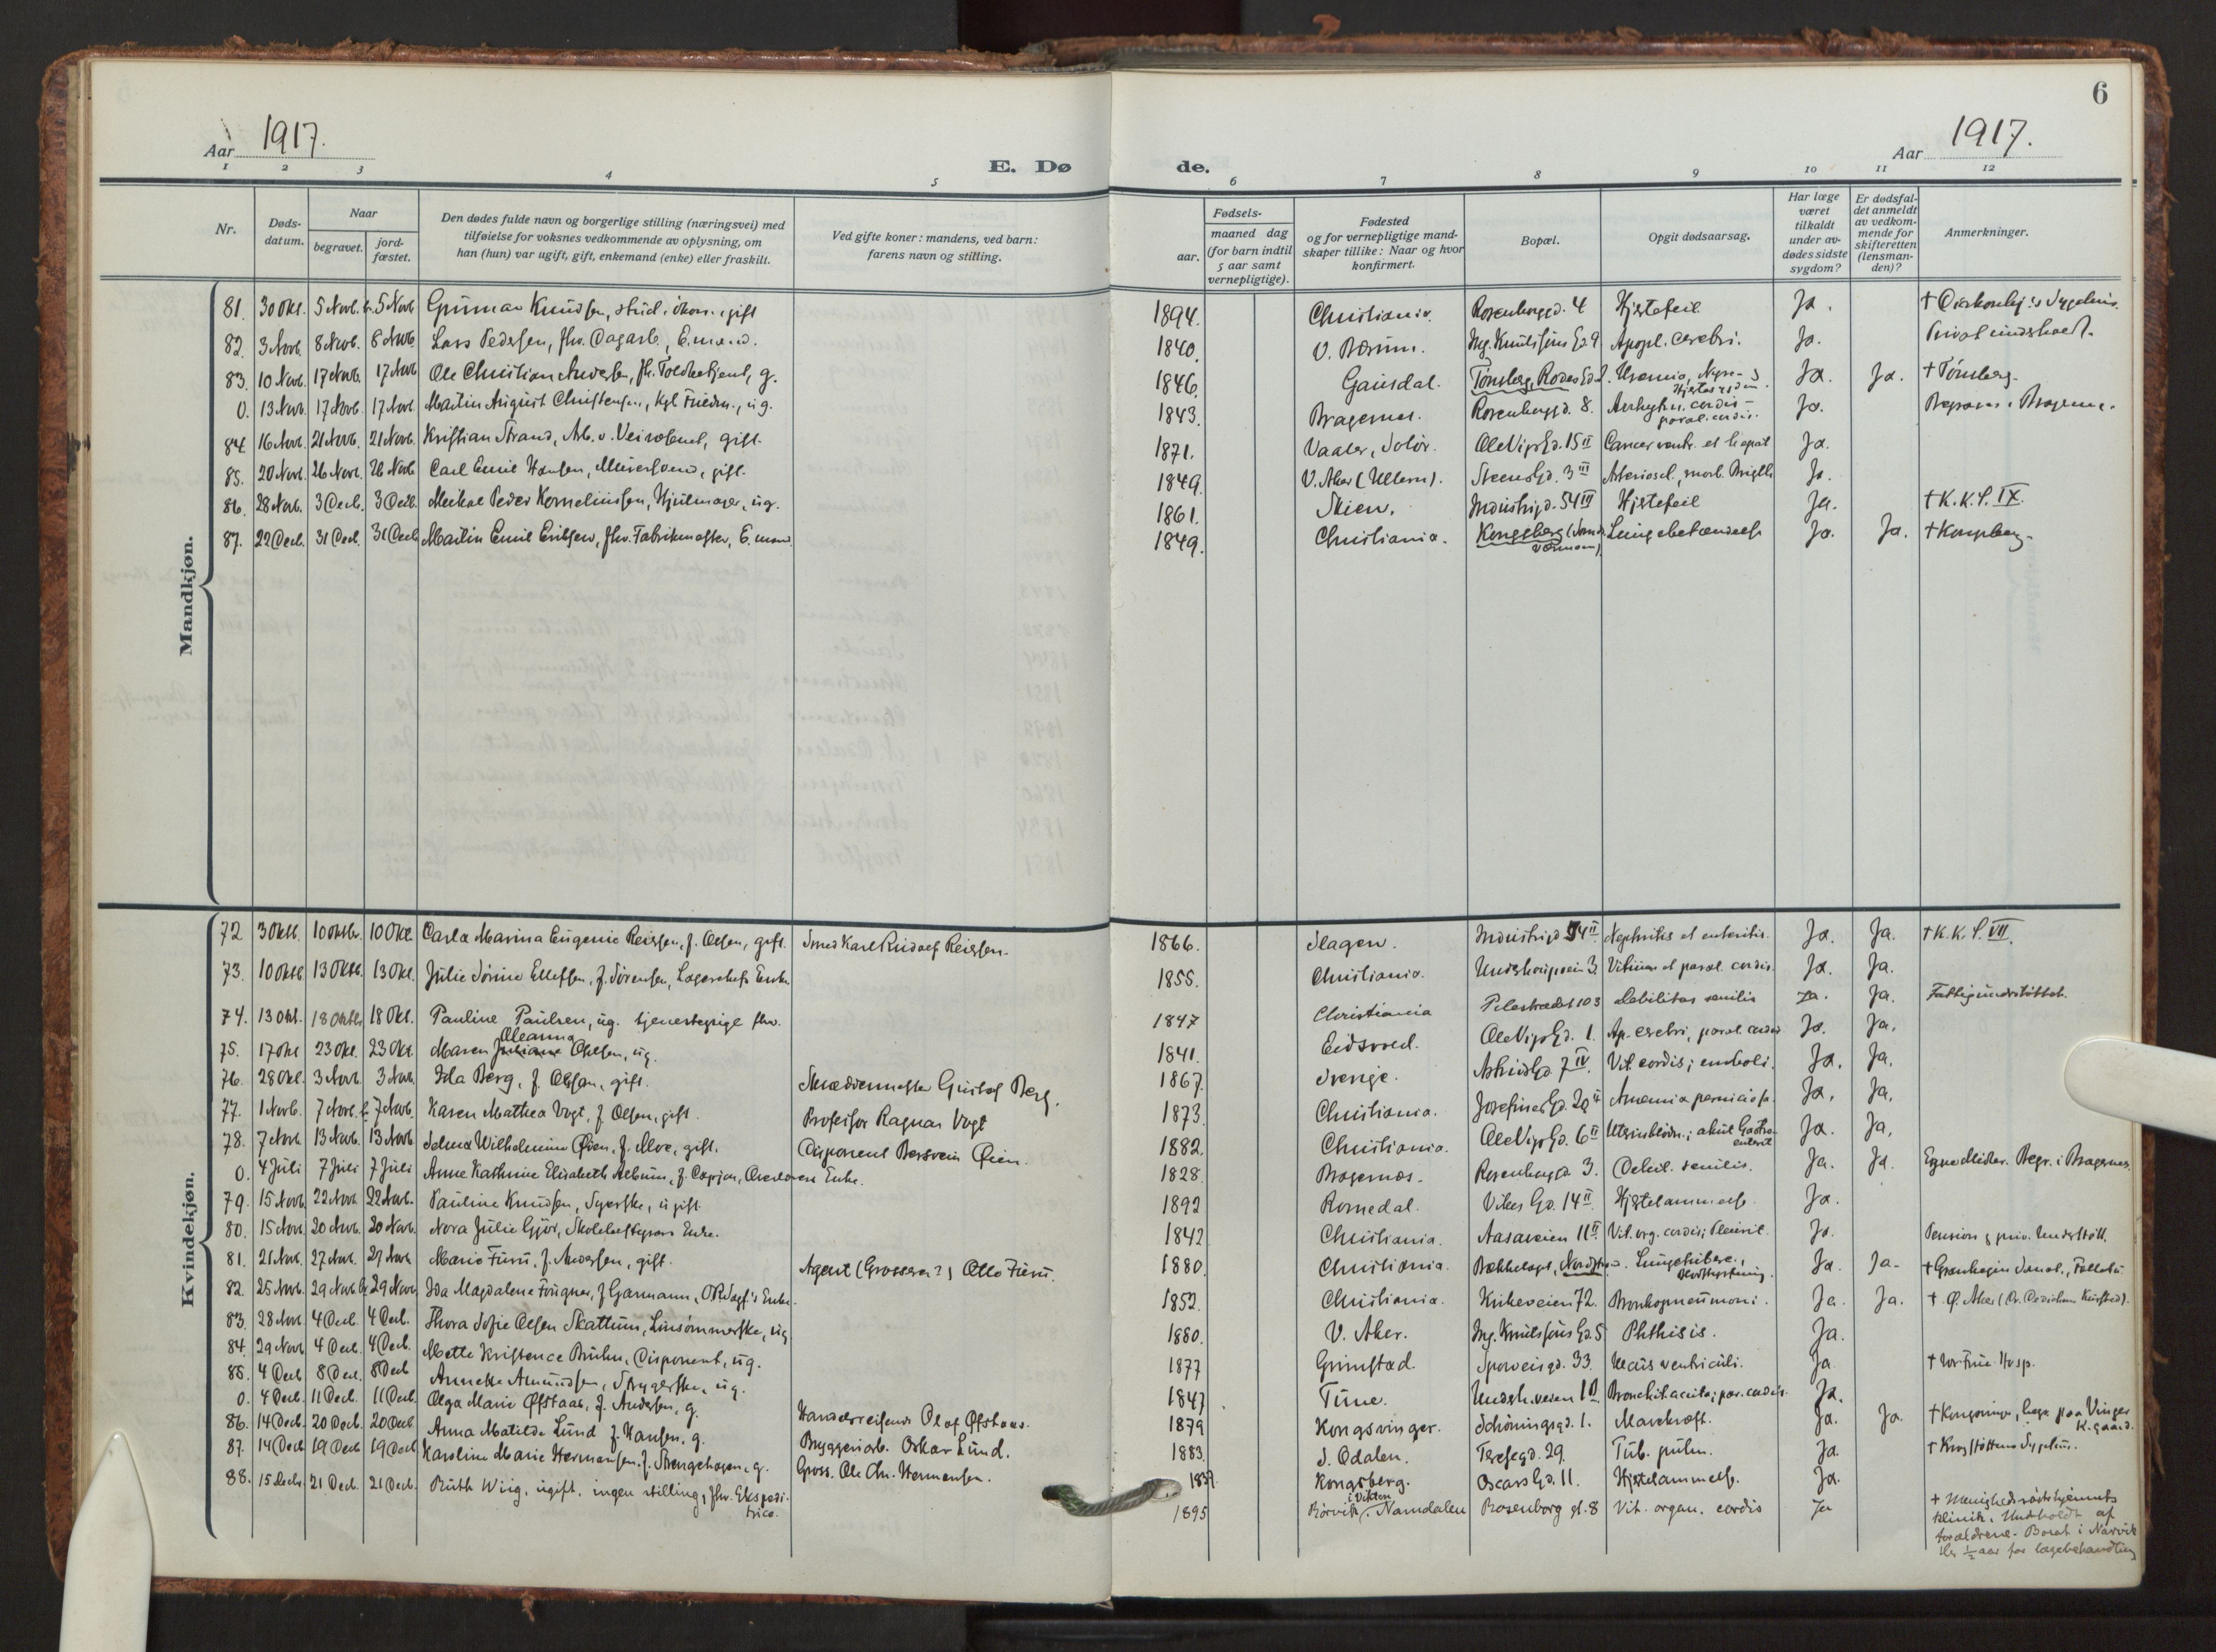 6
Aar 1917.
Aar 1917.
E. Dø de.
1 2 3 4 5 6 7 8 9 10 11 12
Nr.
Døds-datum.
Naar
begravet.
jord-fæstet.
Den dødes fulde navn og borgerlige stilling (næringsvei) med tilføielse for voksnes vedkommende av oplysning, om han (hun) var ugift, gift, enkemand (enke) eller fraskilt.
Ved gifte koner: mandens, ved barn: farens navn og stilling.
Fødsels-
aar.
maaned dag
(for barn indtil 5 aar samt vernepligtige).
Fødested og for vernepligtige mandskaper tillike: Naar og hvor konfirmert.
Bopæl.
Opgit dødsaarsag.
Har læge været tilkaldt under avdødes sidste sygdom?
Er dødsfaldet anmeldt av vedkommende for skifteretten (lensmanden)?
Anmerkninger.
Mandkjøn.
81. 30 Okt. 5 Novb. 5 Novb Gunnar Knudsen, stud. økon., gift 1894. Christiania. Rosenborggd. 4 Hjertefeil Ja. Sygehus.
82. 3 Novb. 8 Novb. 8 Novb Lars Pedersen, fhv. Dagarb., E.mand. 1840. V. Bærum. Ing. Knudsøns Gd 9 Apopl. cerebri. Ja. Privat underhold.
83. 10 Novb. 17 Novb. 17 Novb Ole Christian Andersen, fh. Toldbetjent, g. 1846. Gausdal. Tønsberg, Uræmia, Nyre- Ja. Ja. † Tønsberg.
0. 13 Novb. 17 Novb. 17 Novb. Martin August Christensen, Kgl. ug. 1843. Bragernes. Rosenborggd. 8. Arrhythm. cordis - paral. cordis. Ja. Bragernes.
84. 16 Novb. 21 Novb. 21 Novb. Kristian Strand, Arb. v. Veivæsenet, gift. 1871. Vaaler, Solør. Ole Vigs Gd. 15 II Cancer ventr. et hepat Ja.
85. 20 Novb. 26 Novb. 26 Novb Carl Emil Hansen, Murersvend, gift. 1849. V. Aker (Ullern). Steens Gd. 3 III Arterioscl., morb. Brightii Ja.
86. 28 Novb. 3 Decb. 3 Decb. Meikal Peder Korneliussen, Hjulmager, ug. 1861. Skien. Industrigd. 54 III Hjertefeil Ja. † K. K. S. IX.
87. 22 Decb. 31 Decb. 31 Decb Martin Emil Eriksen, fhv. Fabrikmester, E.mand. 1849. Christiania. Kongsberg Lungebetændelse Ja. Ja. † Kongsberg.
Kvindekjøn.
72 3 Oktb. 10 Oktbr. 10 Okt. Carla Marina Eugenie Reiersen, f. Olsen, gift. Smed Karl Rudolf Reiersen. 1866. Slagen. Industrigd 54 II Nephritis et enteritis. Ja. Ja. † K. K. S. VII.
73. 10 Oktb. 13 Oktb. 13 Okt. Julie Sørine Ellefsen, f. Sørensen, Lagerchefs Enke 1855. Christiania. Underhaugsvein 3. Vitium et paral. cordis. Ja. Ja.
74. 13 Okt. 18 Oktbr 18 Okt. Pauline Paulsen, ug. tjenestepige fhv. 1847 Christiania Pilestrædet 103 Debilitas senilis Ja. Ja. Fattigunderstøttet.
75. 17 Okt 23 Okt. 23 Okt. Maren Oleanna Olsen, ug. 1841. Eidsvold. Ole Vigs Gd. 1. Ap. cerebri, paral. cordis Ja. Ja.
76. 28 Okt. 3 Novb. 3 Novb. Ida Berg, f. Olsson, gift. Skræddermester Gustaf Berg. 1867. Sverige. Astrids Gd. 7 IV. Vit. cordis; emboli. Ja. Ja.
77. 1 Novb. 7 Novb. 7 Novb. Karen Mathea Vogt, f. Olsen, gift. Professor Ragnar Vogt 1873. Christiania. Josefines Gd. 29 II Anæmia perniciosa. Ja. Ja.
78. 7 Novb. 13 Novb. 13 Novb. Selma Wilhelmine Øien, f. Alve, gift. Disponent Bersvein Øien. 1882. Christiania. Ole Vigs Gd. 6 II Uterinblødn.; akut Gastro-enterit Ja. Ja.
0. 4 Juli 7 Juli 7 Juli Anne Kathrine Elisabeth Album, f. Enke. 1828. Bragernæs. Rosenborggd 3. Debil. senilis. Ja. Ja. Egne Midler. Begr. i Bragernes.
79. 15 Novb. 22 Novb. 22 Novb. Pauline Knudsen, Syerske, ugift. 1892 Romedal. Vibes Gd. 14 II. Hjertelammelse. Ja.
80. 15 Novb. 20 Novb. 20 Novb. Nora Julie Gjør, Skolebestyrers Enke. 1842 Christiania. Aasaveien 11 II. Vit. org. cordis; Pleurit. Ja. Pension og priv. Understøtt.
81. 21 Novb. 27 Novb. 27 Novb Marie Furu, f. Andersen, gift. Agent (Grosserer?) Otto Furu. 1880. Christiania. Bækkelaget, Nordstrand. Lungetuberc., Blodstyrtning. Ja. Ja. † Grønhagen Sanat., Follebu
82. 25 Novb. 29 Novb 29 Novb Ida Magdalene Fougner, f Garmann, Enke. 1852. Christiania. Kirkeveien 72. Bronkopneumoni. Ja. Ja. † Ø. Aker
83. 28 Novb. 4 Decb. 4 Decb. Thora Sofie Olsen Skattum, Linsømmerske, ug 1880. V. Aker. Ing. Knudsøns Gd. 5 Phthisis. Ja.
84. 29 Novb 4 Decb. 4 Decb. Mette Kristence Bruhn, Disponent, ug. 1877 Grimstad. Sporveisgd. 33. Ulcus ventriculi. Ja † Vor Frue Hosp.
85. 4 Decb 8 Decb. 8 Decb Annette Amundsen, Strygerske, ug. 1847 Tune. Bronchit acuta; par. cordis. Ja.
0. 4 Decb. 11 Decb. 11 Decb. Olga Marie Øfstaas, f. Andersen, g. Handelsreisende Olaf Øfstaas. 1879 Kongsvinger. Schøningsgd. 1. Mavekræft. Ja. Ja. † Kongsvinger, begr. paa Vinger K.gaard.
86. 14 Decb. 20 Decb. 20 Decb Anna Matilde Lund f. Hansen, g. Bryggeriarb. Oskar Lund. 1883. S. Odalen. Teresegd. 29. Tub. pulm. Ja. † Krogstøttens Sygehus.
87. 14 Decb 19 Decb 19 Decb Karoline Marie Hermansen, f. Strengehagen, g. Gross. Ole Chr. Hermansen. Kongsberg. Oscars Gd. 11. Hjertelammelse. Ja.
88. 15 Decbr 21 Decb. 21 Decb. Ruth Wiig, ugift, ingen stilling, fhv. Ekspeditrice. 1895 Rørvik i Vikten i Namdalen Rosenborg gt. 8 Vit. organ. cordis Ja † Menighedssøsterhjemmets klinik. Underholdt af forældrene. Boet i Narvik ca ½ aar for lægebehandling